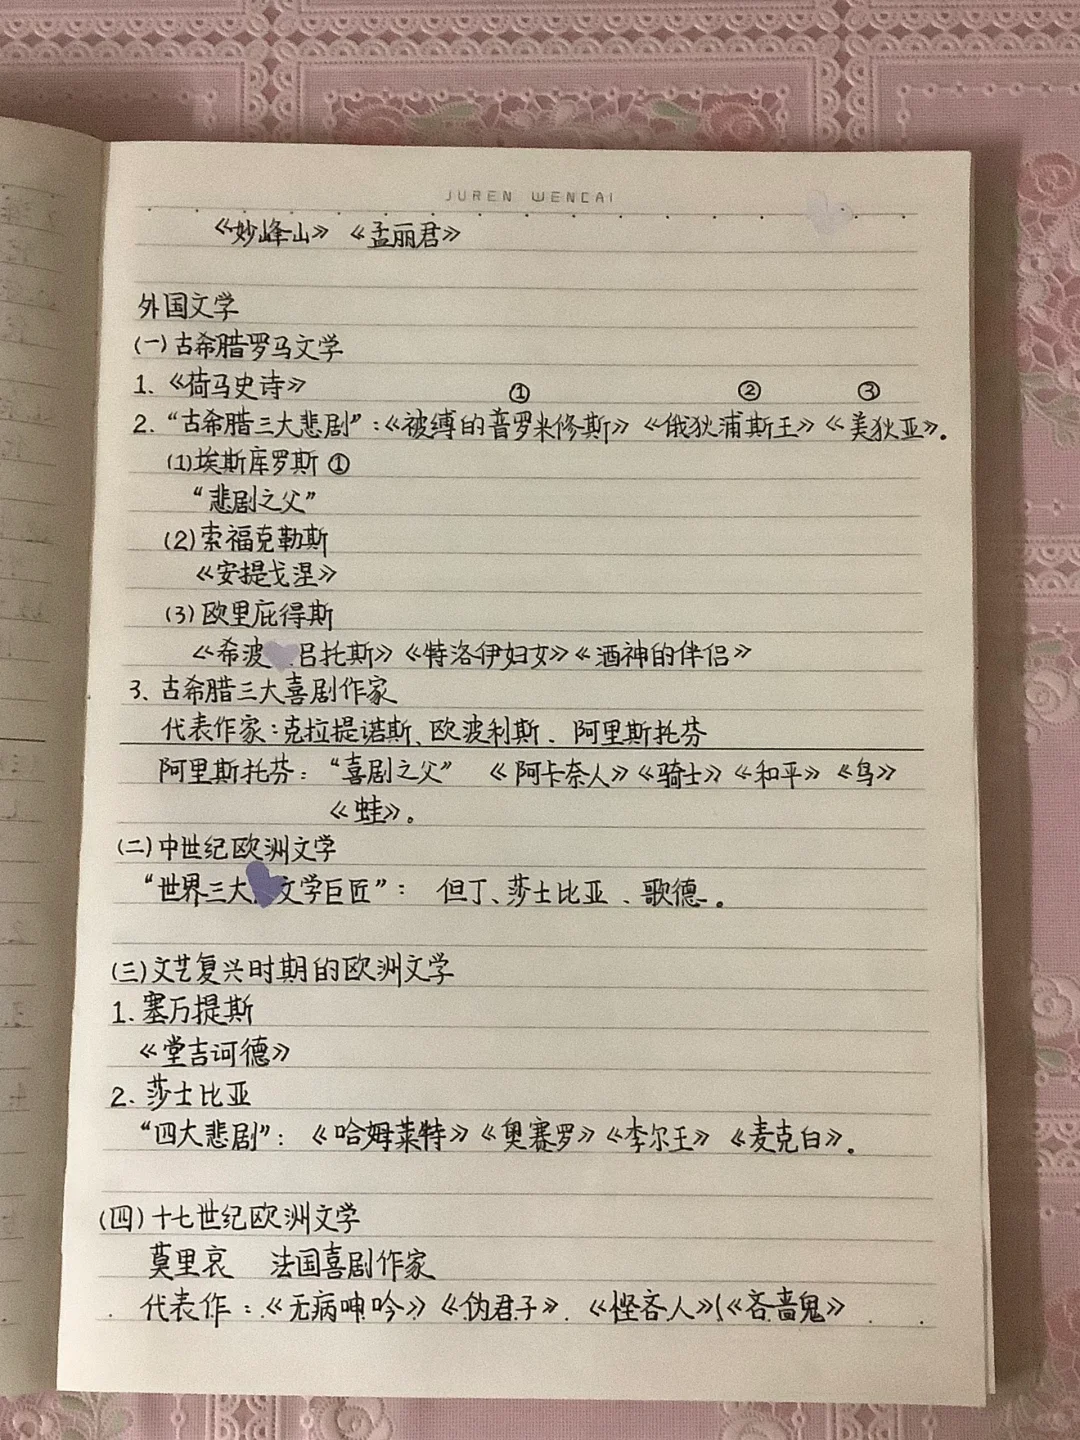 JUREN WENCAI
《妙峰山》《孟丽君》
外国文学
(一)古希腊罗马文学
1.《荷马史诗》
① ② ③
2.“古希腊三大悲剧”:《被缚的普罗米修斯》《俄狄浦斯王》《美狄亚》。
(1)埃斯库罗斯①
“悲剧之父”
(2)索福克勒斯
《安提戈涅》
(3)欧里庇得斯
《希波 吕托斯》《特洛伊妇女》《酒神的伴侣》
3、古希腊三大喜剧作家
代表作家:克拉提诺斯、欧波利斯.阿里斯托芬
阿里斯托芬:“喜剧之父” 《阿卡奈人》《骑士》《和平》《鸟》
《蛙》。
(二)中世纪欧洲文学
“世界三大 文学巨匠”: 但丁、莎士比亚、歌德。
(三)文艺复兴时期的欧洲文学
1.塞万提斯
《堂吉诃德》
2.莎士比亚
“四大悲剧”: 《哈姆莱特》《奥赛罗》《李尔王》《麦克白》。
(四)十七世纪欧洲文学
莫里哀 法国喜剧作家
代表作:《无病呻吟》《伪君子》.《悭吝人》(《吝啬鬼》